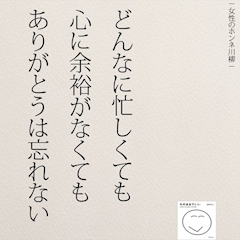 ―女性のホンネ川柳―
どんなに忙しくても
心に余裕がなくても
ありがとうは忘れない